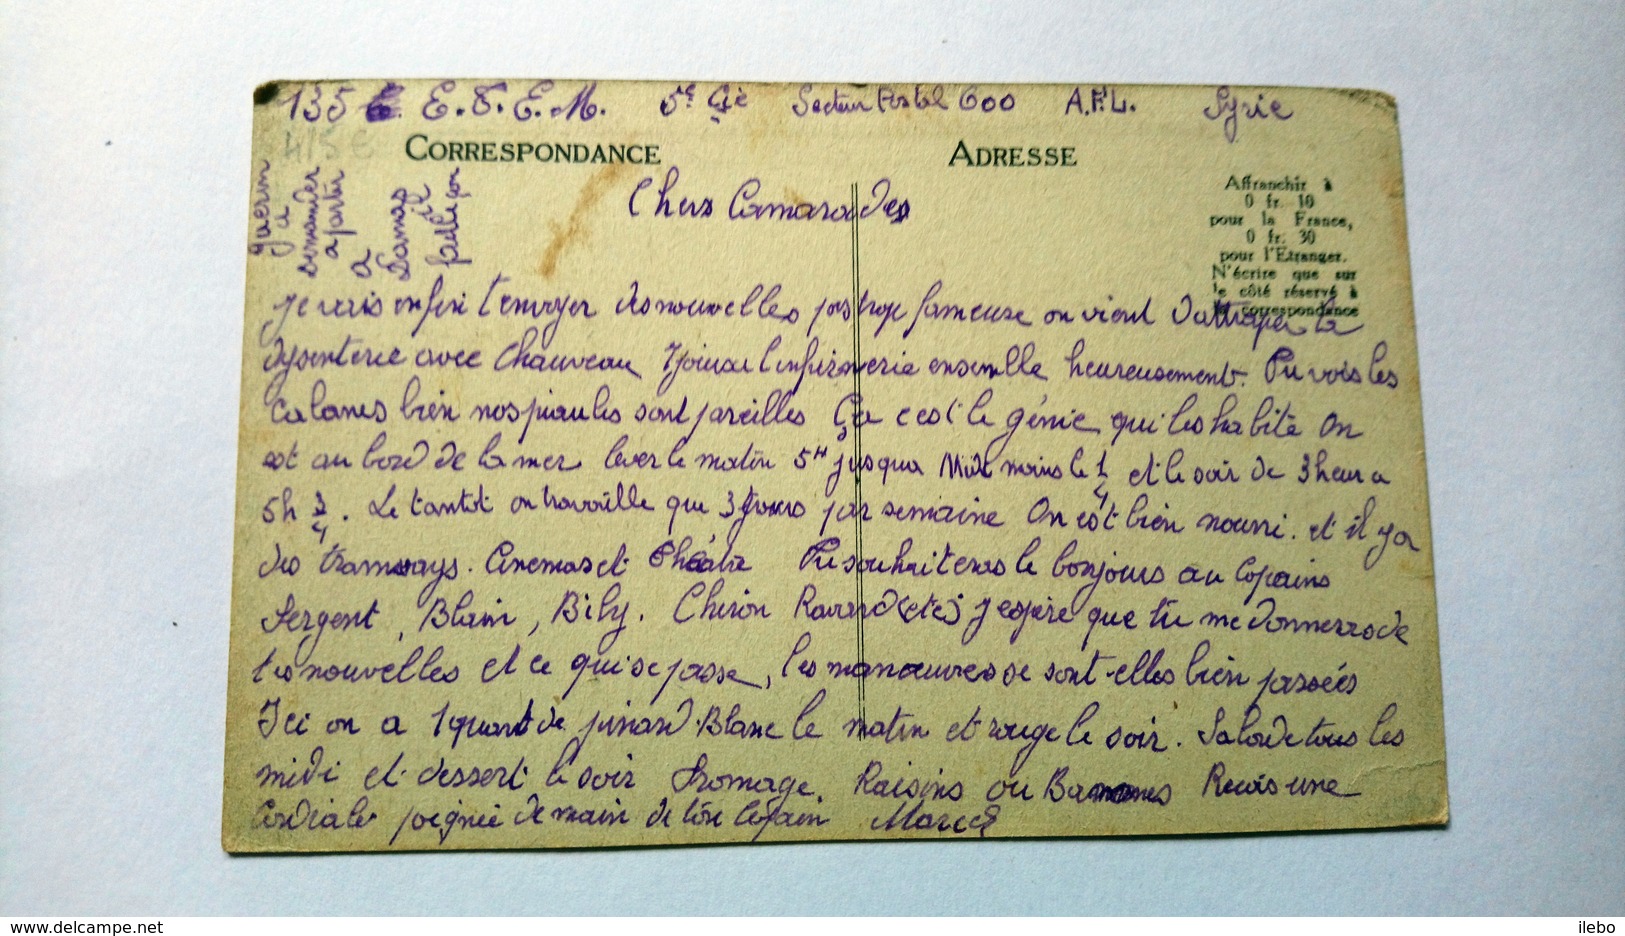 135e E.T.E.M. 5e Cie Secteur Postal 600 A.F.L. Syrie
415€
CORRESPONDANCE
ADRESSE
Affranchir à
0 fr. 10
pour la France,
0 fr. 30
pour l'Etranger.
N'écrire que sur
le côté réservé à
la correspondance
Guerin
a
demander
a partir
a
Damas
il
Chers Camarades
je vais enfin t'envoyer des nouvelles pas trop fameuse on vient d'attraper la
dysenterie avec Chauveau 7 jours l'infirmerie ensemble heureusement. Tu vois les
cabanes bien nos piaules sont pareilles Ça c'est le génie qui les habite On
est au bord de la mer lever le matin 5H jusqua Midi moins le 1/4 et le soir de 3 heur a
5h 3/4. Le tantot on travaille que 3 jours par semaine On est bien nourri. et il y a
des tramways. Cinemas et Théatre Tu souhaiteras le bonjours au Copains
Sergent, Blain, Bily. Chiron Ravard (etc) J'espère que tu me donneras de
tes nouvelles et ce qui se passe, les manœuvres se sont-elles bien passées
Ici on a 1 quart de pinard Blanc le matin et rouge le soir. Salade tous les
midi et dessert le soir fromage. Raisins ou Bananes Recois une
Cordiale poignée de main de ton Copain Marcel
ilebo